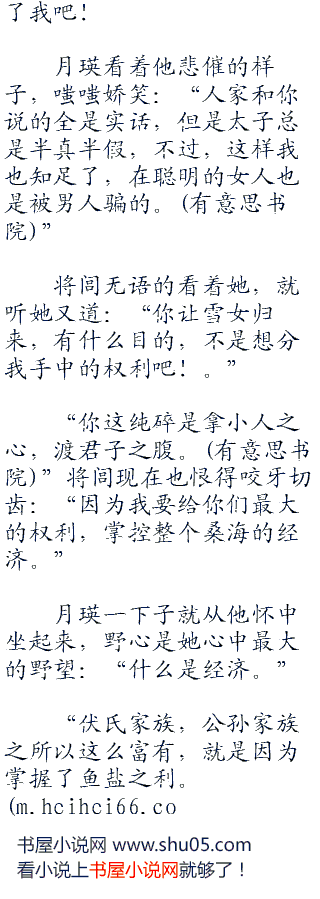 了我吧！
月瑛看着他悲催的样
子，嗤嗤娇笑：“人家和你
说的全是实话，但是太子总
是半真半假，不过，这样我
也知足了，在聪明的女人也
是被男人骗的。(有意思书
院)”
将闾无语的看着她，就
听她又道：“你让雪女归
来，有什么目的，不是想分
我手中的权利吧！。”
“你这纯碎是拿小人之
心，渡君子之腹。(有意思书
院)”将闾现在也恨得咬牙切
齿：“因为我要给你们最大
的权利，掌控整个桑海的经
济。”
月瑛一下子就从他怀中
坐起来，野心是她心中最大
的野望：“什么是经济。”
“伏氏家族，公孙家族
之所以这么富有，就是因为
掌握了鱼盐之利。
(m.hcihci66.co
书屋小说网 www.shu05.com
看小说上书屋小说网就够了！